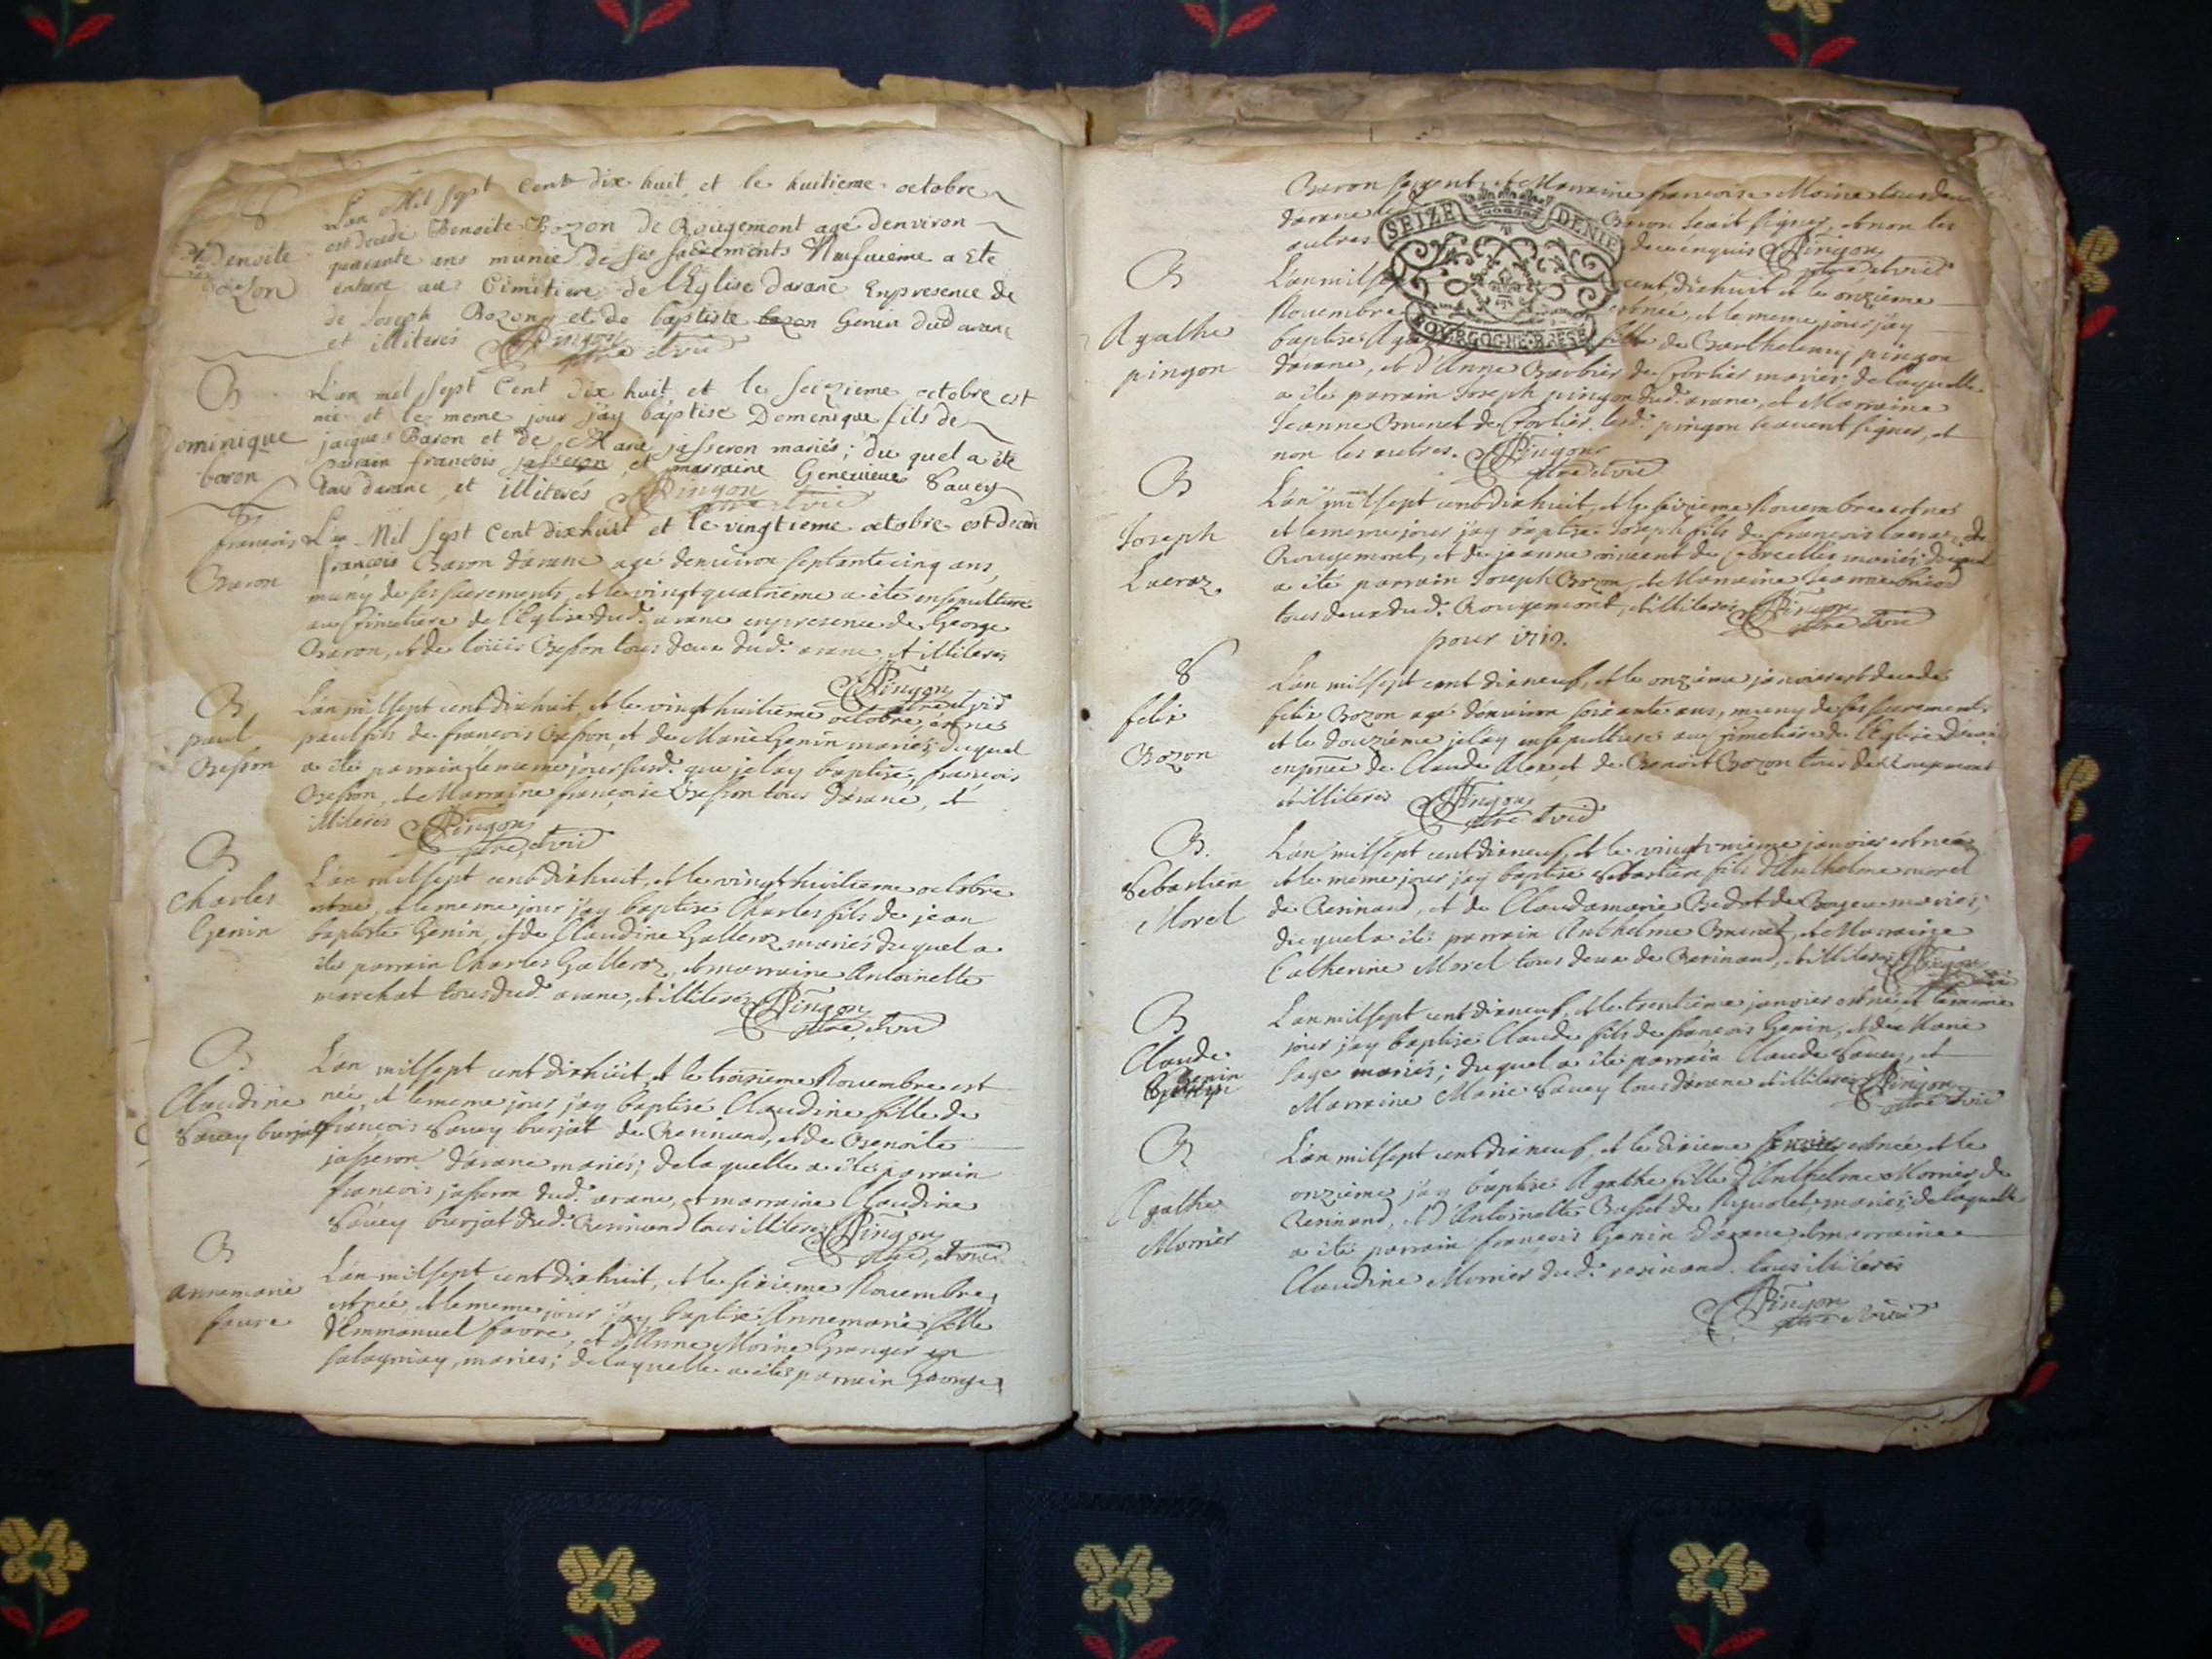 S
Benoite
Bozon
L'an Mil sept Cent dix huit et le huitieme octobre
est decedé Benoite Bozon de Rougemont agé denviron
quarante ans munie de ses sacrements Neufvieme a Ete
enterré au Cimitiere de l'Eglise darane Enpresence de
de Joseph Bozon et de baptiste bozon Genin dud arane
et illiterés Pingon
B
Dominique
baron
L'an mil sept Cent dix huit et le seizieme octobre est
né et le meme jour j'ay baptisé Domenique fils de
jacques Baron et de Marie jasseron mariés; du quel a été
parrain francois jasseron et marraine Genevieve Savey
tous darane et illiterés Pingon
S
francois
Baron
L'an Mil sept Cent dixhuit et le vingtieme octobre est decedé
francois Baron d'arane agé denviron septantecinq ans
muny de ses sacrements, et le vingtquatrieme a été ensepulturé
au Cimetiere de l'Eglise dud. arane enpresence de George
Baron, et de louis Besson tous deux dud. arane et illiterés
Pingon
B
paul
Besson
L'an milsept cent dixhuit, et le vingthuitieme octobre est né
paul fils de francois Besson, et de Marie Genin mariés, duquel
a été parrain le meme jour susd. que je lay baptisé, francois
Besson, et Marraine francoise Besson tous d'arane, et
illiterés Pingon
B
Charles
Genin
L'an milsept cent dixhuit, et le vingthuitieme octobre
est né, et le meme jour j'ay baptisé Charles fils de jean
baptiste Genin, et de Claudine Galleroz mariés duquel a
été parrain Charles Galleroz, et marraine Antoinette
marchat tous dud. arane, et illiterés Pingon
B
Claudine
Savey burjat
L'an milsept cent dixhuit, et le troisieme Novembre est
née, et le meme jour j'ay baptisé Claudine fille de
francois Savey burjat de Resinand, et de Benoite
jasseron d'arane mariés; de laquelle a été parrain
francois jasseron dud. arane, et marraine Claudine
Savey burjat dud. Resinand tous illiterés Pingon
B
annemarie
favre
L'an milsept cent dixhuit, et le sixieme Novembre
est née, et le meme jour j'ay baptisé Annemarie fille
d'Emmanuel favre, et d'Anne Moine Granger en
mariés; de laquelle a été parrain George
Baron et Marraine francoise Moine tous deux
darane
Baron scait signer, et non les
autres de ce enquis Pingon
B
Agathe
pingon
L'an mil sept cent dixhuit et le onzieme
Novembre est née, et le meme jour j'ay
baptisé Agathe fille de Barthelemy pingon
d'arane, et d'Anne Barbier de Corlier mariés; de laquelle
a été parrain Joseph pingon dud. arane, et Marraine
Jeanne Brunet de Corlier. lesd. pingon scavent signer, et
non les autres. Pingon
B
Joseph
Lacraz
L'an milsept cent dixhuit, et le sixieme Novembre est né
et le meme jour j'ay baptisé Joseph fils de francois Lacraz de
Rougemont, et de jeanne vincent de Corcelles mariés; duquel
a été parrain Joseph Bozon, et Marraine Jeanne
tous deux dud. Rougemont, et illiterés Pingon
pour 1719.
S
felix
Bozon
L'an milsept cent dixneuf, et le onzieme janvier est decedé
felix Bozon agé d'environ soixante ans, muny de ses sacrements
et le douzieme je l'ay ensepulturé au Cimetiere de l'Eglise d'arane
enpnce de Claude et de Benoit Bozon tous de Rougemont
et illiterés Pingon
B.
Sebastien
Morel
L'an milsept cent dixneuf, et le janvier est né
et le meme jour j'ay baptisé Sebastien fils d'Anthelme morel
de Resinand, et de Claudamarie Bedot de mariés;
duquel a été parrain Anthelme Brunet, et Marraine
Catherine Morel tous deux de Resinand, et illiterés Pingon
B
Claude
Genin
L'an milsept cent dixneuf, et le trentieme janvier est né, et le meme
jour j'ay baptisé Claude fils de francois Genin, et de Marie
sage mariés; duquel a été parrain Claude Savey, et
Marraine Marie Savey tous d'arane et illiterés Pingon
B
Agathe
Morrier
L'an milsept cent dixneuf, et le dixieme fevrier est née, et le
onzieme j'ay baptisé Agathe fille d'Anthelme Morrier de
Resinand, et d'Antoinette Busset de mariés; de laquelle
a été parrain francois Genin d'arane et marraine
Claudine Morrier dud. resinand. tous illiterés
Pingon
SEIZE DENIE
BOVRGOGNE·BRESSE